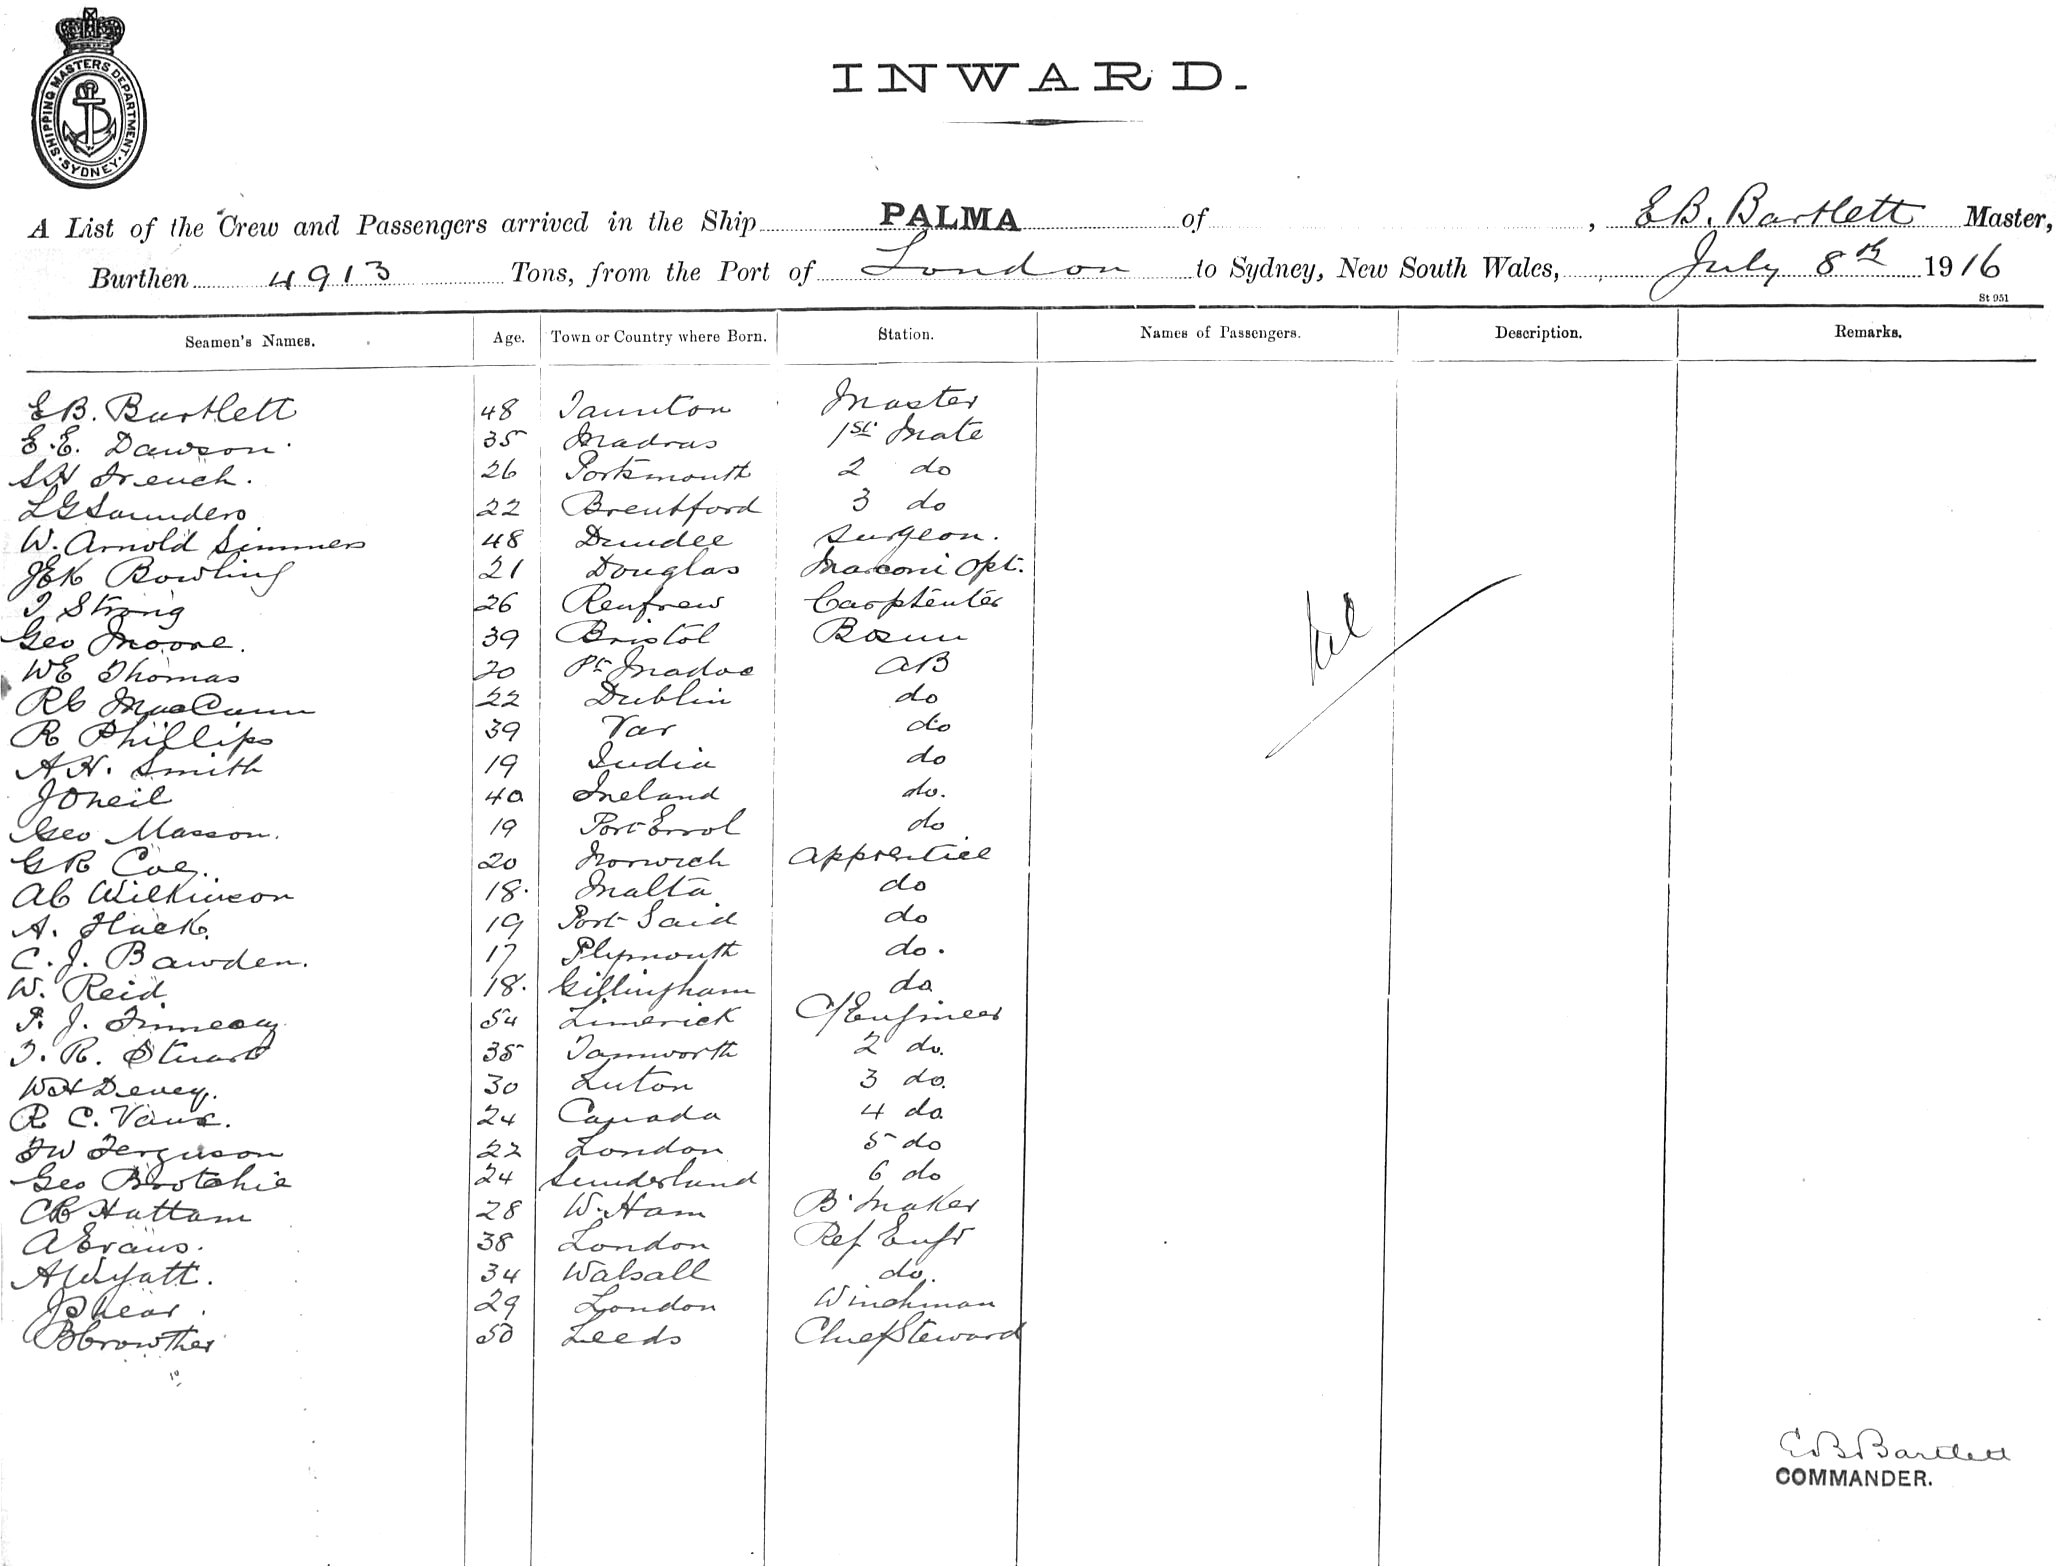 SHIPPING MASTERS DEPARTMENT. SYDNEY
INWARD.
A List of the Crew and Passengers arrived in the Ship PALMA of , E B. Bartlett Master,
Burthen 4913 Tons, from the Port of London to Sydney, New South Wales, July 8th 1916
St 951
Seamen's Names. Age. Town or Country where Born. Station. Names of Passengers. Description. Remarks.
E B. Bartlett 48 Taunton Master
E. E. Dawson. 35 Madras 1st Mate
S H French. 26 Portsmouth 2 do
L G Saunders 22 Brentford 3 do
W. Arnold Simmers 48 Dundee Surgeon.
J E K Bowling 21 Douglas Marconi Opt.
T Strong 26 Renfrew Carptenter
Geo Moore. 39 Bristol Bosun
W E Thomas 20 Pt Madoc AB
R C MacCunn 22 Dublin do
R Phillips 39 Var do
A H. Smith 19 India do
J Oneil 40 Ireland do.
Geo Masson. 19 Port Errol do
G R Coe. 20 Norwich Apprentice
A C Wilkinson 18. Malta do
A. Flack. 19 Port Said do
C. J. Bawden. 17 Plymouth do.
W. Reid. 18. Gillingham do
P. J. 54 Limerick C/Engineer
T. R. Stuart 35 Tamworth 2 do.
W H Devey. 30 Luton 3 do.
R C. Vaux. 24 Canada 4 do
F W Ferguson 22 London 5 do
Geo Brotchie 24 Sunderland 6 do
C C Hattam 28 W. Ham B. Maker
A Evans. 38 London Ref Engr
A Wyatt. 34 Walsall do.
J Shear. 29 London Winchman
B Crowther 50 Leeds Chief Steward
Nil
E B Bartlett
COMMANDER.